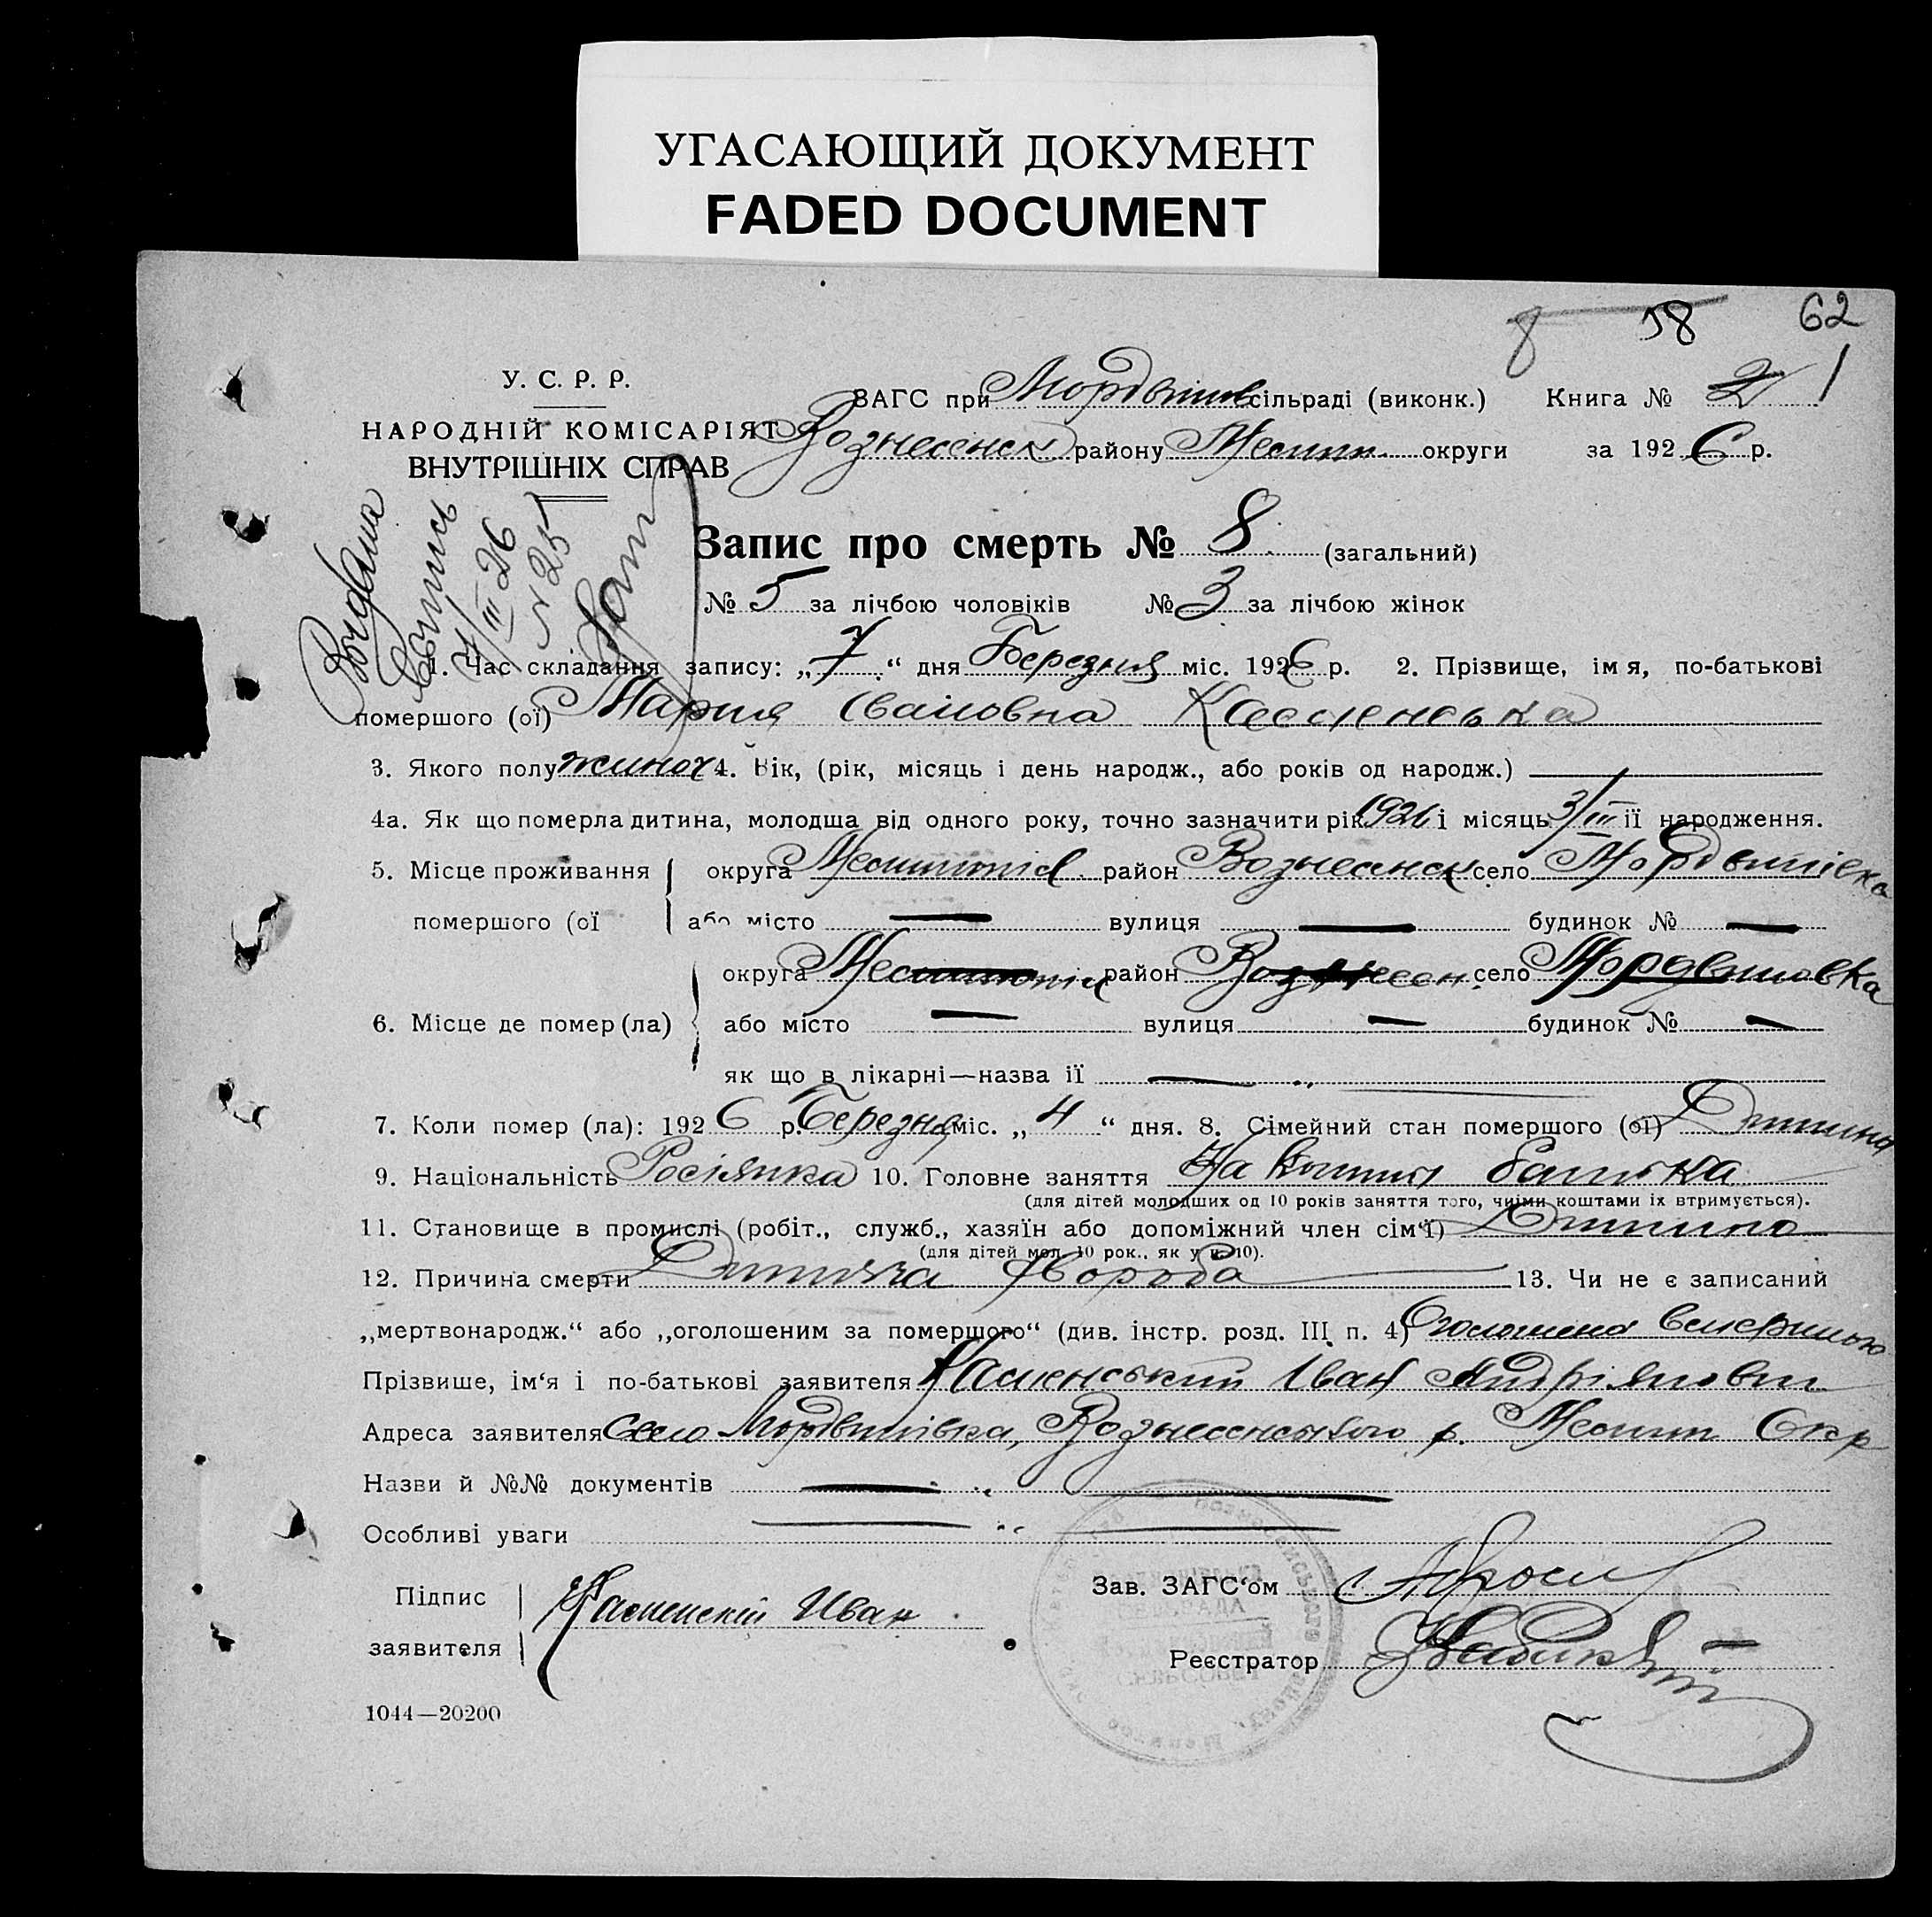 УГАСАЮЩИЙ ДОКУМЕНТ
FADED DOCUMENT
8 58 62
У. С. Р. Р.
НАРОДНІЙ КОМІСАРІЯТ
ВНУТРІШНІХ СПРАВ
ЗАГС при Мордвинів сільраді (виконк.) Книга № 2 1
Вознесенск району Мелит. округи за 1926 р.
Видана
Выпись
7/III 26
№ 25
Запис про смерть № 8 (загальний)
№ 5 за лічбою чоловіків № 3 за лічбою жінок
1. Час складання запису: „7“ дня Березня міс. 1926 р. 2. Прізвище, імя, по-батькові
помершого (ої) Мария Ивановна Каменська
3. Якого полу жиноч 4. Вік, (рік, місяць і день народж., або років од народж.)
4а. Як що померла дитина, молодша від одного року, точно зазначити рік 1926 і місяць 3/III її народження.
5. Місце проживання округа Мелитопіл район Вознесенск село Мордвинівка
помершого (ої або місто — вулиця — будинок № —
округа Мелитопіл район Вознесен. село Мордвиновка
6. Місце де помер (ла) або місто — вулиця — будинок № —
як що в лікарні—назва її — „ —
7. Коли помер (ла): 1926 р. Березня міс. „4“ дня. 8. Сімейний стан помершого (ої) Дитина
9. Національність Росіянка 10. Головне заняття На кошти батька
(для дітей молодших од 10 років заняття того, чиїми коштами їх втримується).
11. Становище в промислі (робіт., служб., хазяїн або допоміжний член сім‘ї) Дитина
(для дітей мол. 10 рок., як у п. 10).
12. Причина смерти Дитяча хвороба 13. Чи не є записаний
„мертвонародж.“ або „оголошеним за помершого“ (див. інстр. розд. III п. 4) Оголошена
Прізвище, ім‘я і по-батькові заявителя Каменський Іван Андріянович
Адреса заявителя Село Мордвинівка, Вознесенського р. Мелит Окр
Назви й №№ документів — „ —
Особливі уваги — „ —
Підпис Каменский Иван
заявителя
Зав. ЗАГС‘ом
Реєстратор
1044—20200